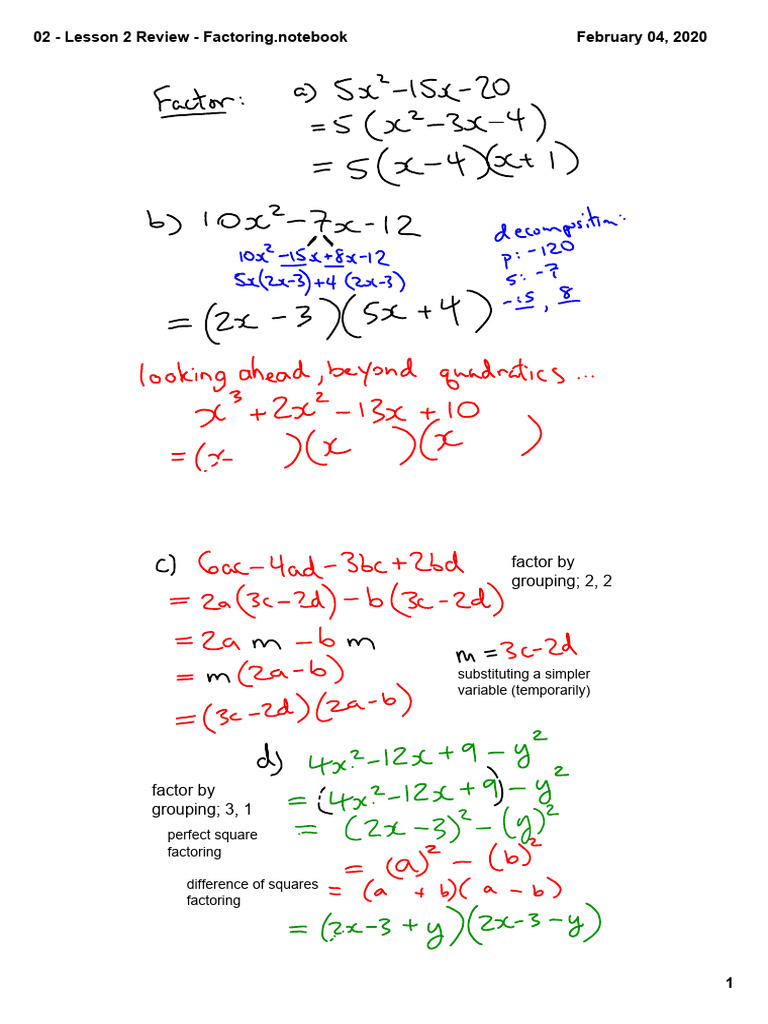 02 - Lesson 2 Review - Factoring.notebook February 04, 2020
Factor: a) 5x²-15x-20
= 5(x²-3x-4)
= 5(x-4)(x+1)
b) 10x²-7x-12
decomposition:
p: -120
s: -7
-15, 8
10x²-15x+8x-12
5x(2x-3)+4(2x-3)
= (2x-3)(5x+4)
looking ahead, beyond quadratics ...
x³+2x²-13x+10
= (x )(x )(x )
c) 6ac-4ad-3bc+2bd
factor by
grouping; 2, 2
= 2a(3c-2d)-b(3c-2d)
= 2am-bm
= m(2a-b)
m = 3c-2d
substituting a simpler
variable (temporarily)
= (3c-2d)(2a-b)
d) 4x²-12x+9-y²
factor by
grouping; 3, 1
= (4x²-12x+9)-y²
perfect square
factoring
= (2x-3)²-(y)²
= (a)²-(b)²
difference of squares
factoring
= (a + b)(a - b)
= (2x-3+y)(2x-3-y)
1